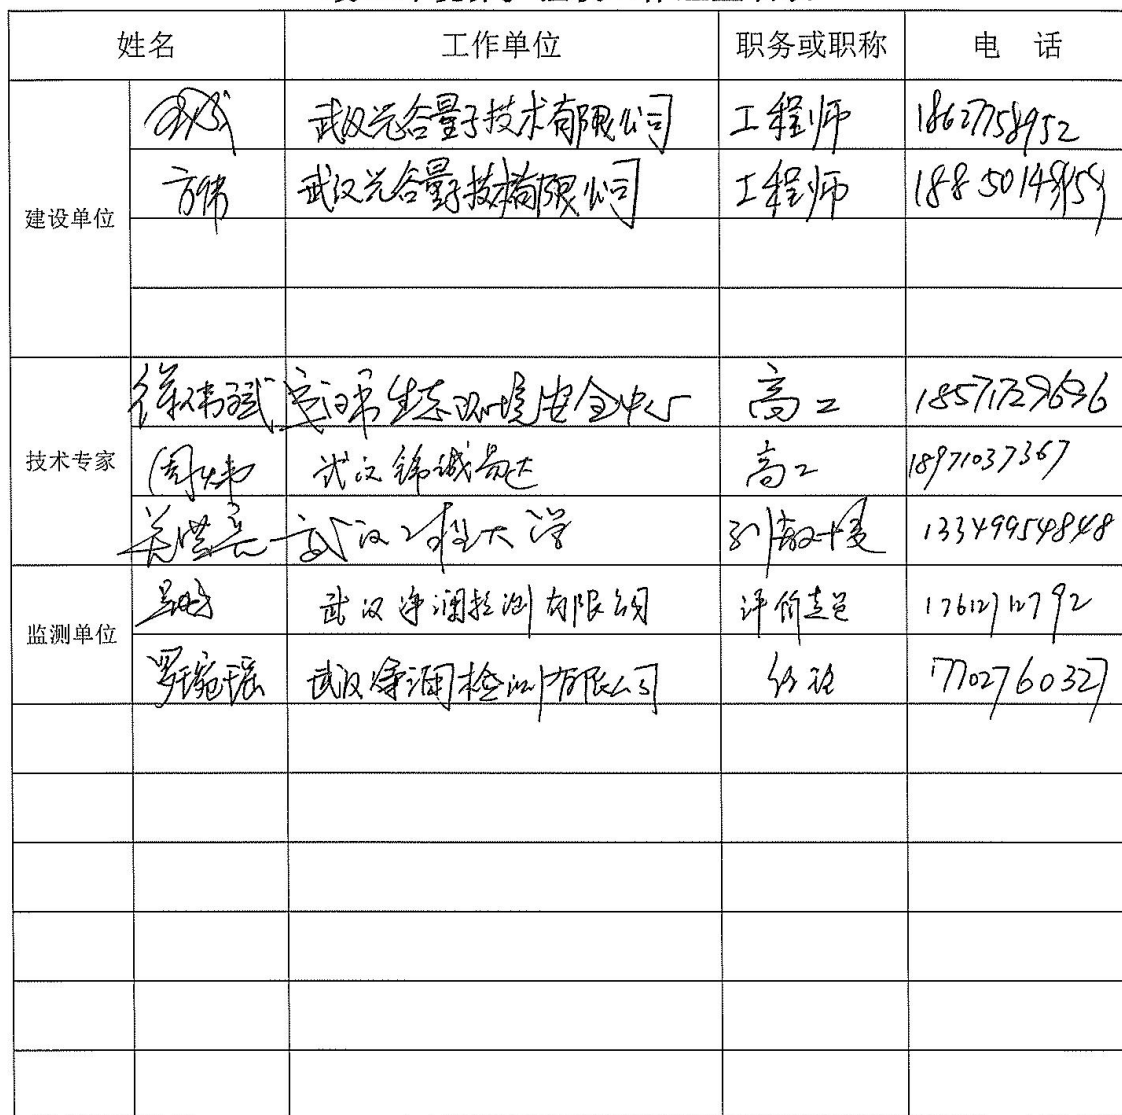 姓名 工作单位 职务或职称 电 话
建设单位
武汉光谷量子技术有限公司 工程师 18627758952
方伟 武汉光谷量子技术有限公司 工程师
技术专家
徐祎斌 武汉市生态环境安全中心 高工 18571729696
周炜 武汉锦诚易达 高工 18971037367
武汉工程大学 副教授 13349954848
监测单位
武汉净澜检测有限公司 17612712792
罗琬瑶 武汉净澜检测有限公司 经理 17702760327